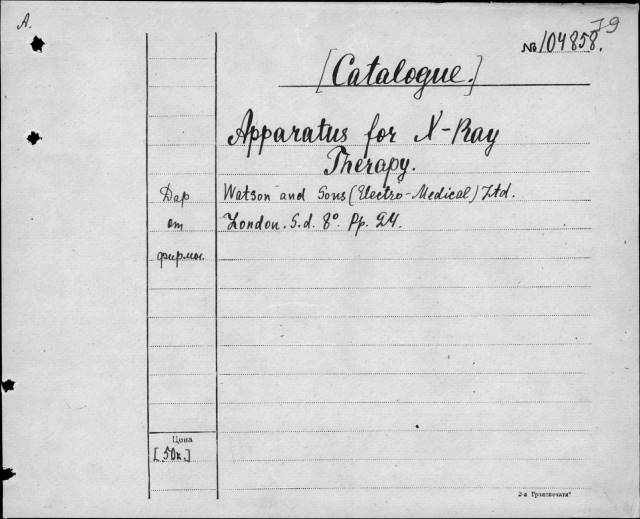 A.
79
№ 104858.
[Catalogue.]
Apparatus for X-Ray
Therapy.
Дар
Watson and Sons (Electro-Medical) Ltd.
от
London. S.d. 8° Pp. 24.
фирмы.
Цена
[50к.]
2-я Транспечати"